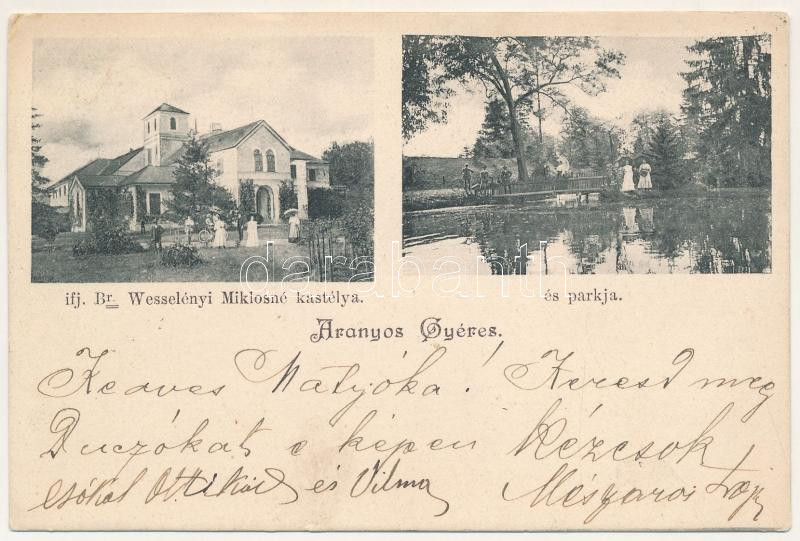 ifj. Br. Wesselényi Miklosné kastélya. és parkja.
darabanth
Aranyos Gyéres.
Kedves Matyóka! Keresd meg
Duczókát e képen Kézcsok
csókol Ottikád és Vilma Mészáros